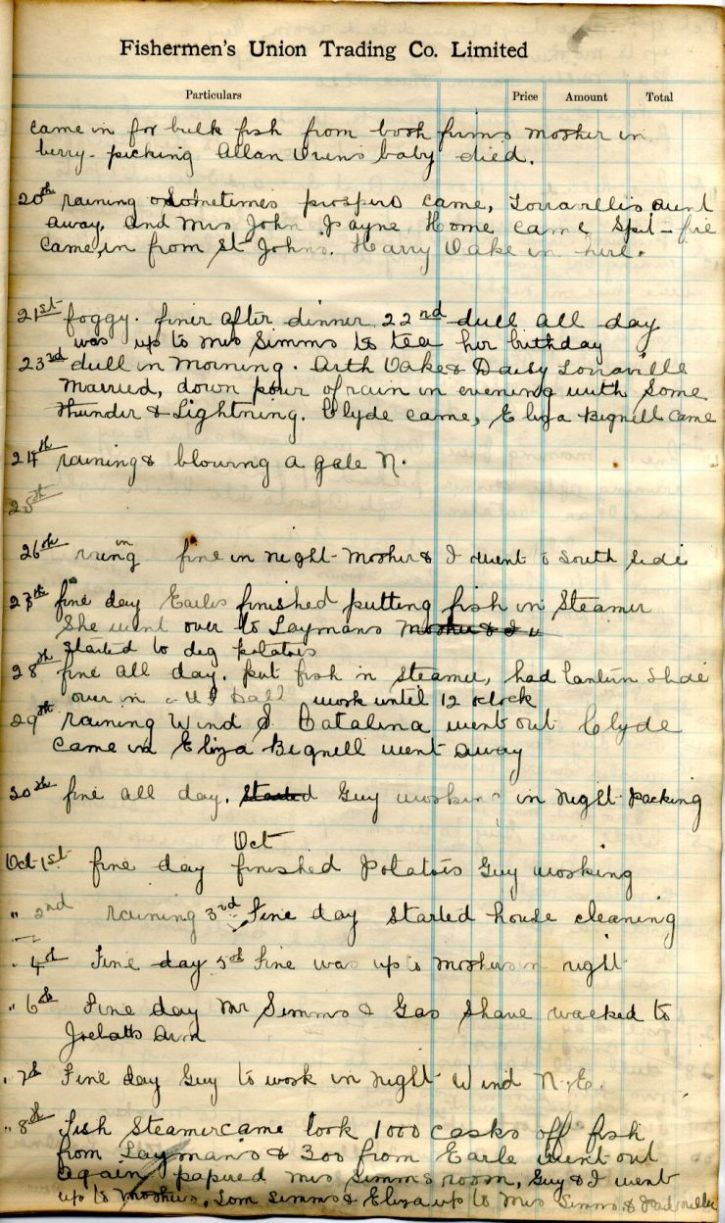 Fishermen's Union Trading Co. Limited
Particulars Price Amount Total
came in for bulk fish from both firms mother in
berry-picking Allan baby died.
20th raining sometimes prospero came, aunt
away, and Mrs John Payne Home came Spit-fire
came in from St Johns. Harry Oake in here.
21st foggy. finer after dinner 22nd dull all day
was up to Mrs Simms to tea her birthday
23rd dull in morning. Arth Oake & Daisy
married, down pour of rain in evening with some
thunder & Lightning. Clyde came, Eliza Bignell came
24th raining & blowing a gale N.
25th
26th fine in night Mother & I went to South side
27th fine day Earles finished putting fish in Steamer
She went over to Laymans Mother & I u
started to dig potatois
28th fine all day. put fish in steamer, had lantern slide
over in Hall work until 12 oclock
29th raining Wind S. Catalina went out Clyde
came in Eliza Bignell went away
30th fine all day. Started Guy working in night packing
Oct
Oct 1st fine day finished Potatois Guy working
" 2nd raining 3rd Fine day started house cleaning
" 4th Fine day 5th Fine was up to mothers in night
" 6th Fine day Mr Simms & Gas Shave walked to
Arm
" 7th Fine day Guy to work in night Wind N.E.
" 8th Fish Steamer came took 1000 casks off fish
from Laymans & 300 from Earle went out
again papered Mrs Simms room, Guy & I went
up to mothers, Tom Simms & Eliza up to Mrs Simms &